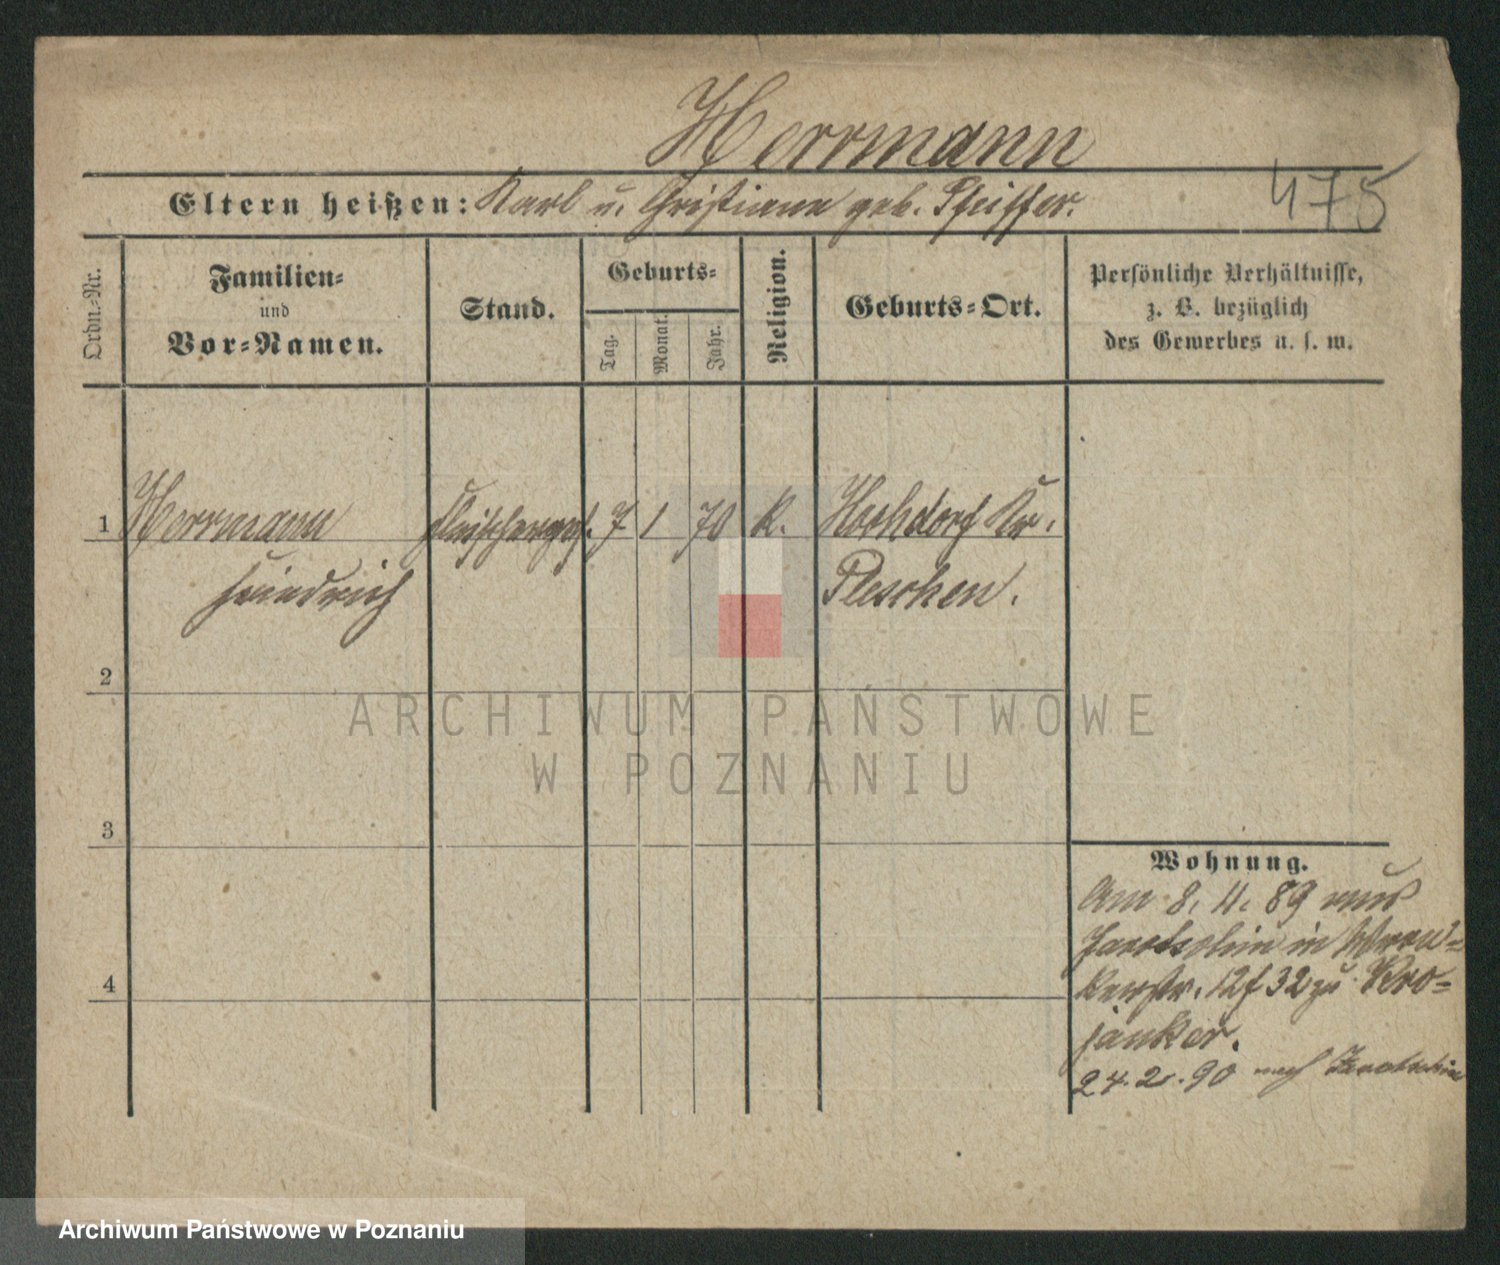 Herrmann
Eltern heißen: Karl u. Christiane geb. Pfeiffer.
475
Ordn.-Nr.
Familien-
und
Vor-Namen.
Stand.
Geburts-
Tag.
Monat.
Jahr.
Religion.
Geburts-Ort.
Persönliche Verhältnisse,
z. B. bezüglich
des Gewerbes u. s. w.
1 Herrmann Fleischerges. 7 1 70 K. Hochdorf Kr.
Friedrich Pleschen.
2
3
4
Wohnung.
Am 8. 4. 89 aus
Jarotschin in
12 32 zu Kro-
janker.
24. 2. 90 nach Jarotschin
ARCHIWUM PAŃSTWOWE
W POZNANIU
Archiwum Państwowe w Poznaniu